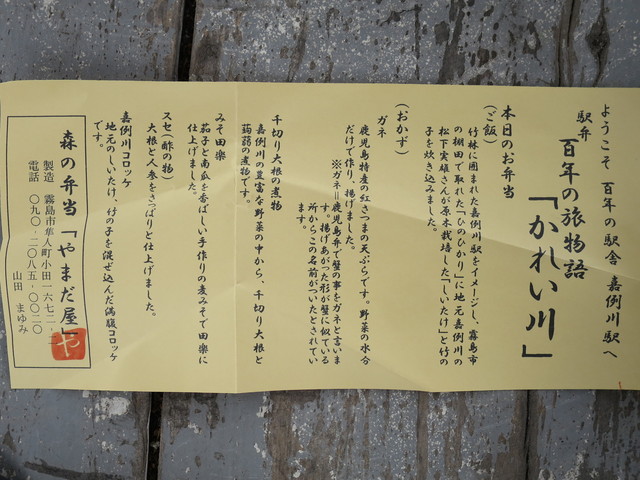 ようこそ 百年の駅舎 嘉例川駅へ
駅弁
百年の旅物語
「かれい川」
本日のお弁当
(ご飯)
竹林に囲まれた嘉例川駅をイメージし、霧島市
の棚田で取れた「ひのひかり」に地元嘉例川の
松下実雄さんが原木栽培した「しいたけ」と竹の
子を炊き込みました。
(おかず)
ガネ
鹿児島特産の紅さつまの天ぷらです。野菜の水分
だけで作り、揚げました。
※ガネ=鹿児島弁で蟹の事をガネと言いま
す。揚げあがった形が蟹に似ている
所からこの名前がついたとされてい
ます。
千切り大根の煮物
嘉例川の豊富な野菜の中から、千切り大根と
蒟蒻の煮物です。
みそ田楽
茄子と南瓜を香ばしい手作りの麦みそで田楽に
仕上げました。
スセ(酢の物)
大根と人参をさっぱりと仕上げました。
嘉例川コロッケ
地元のしいたけ、竹の子を混ぜ込んだ満腹コロッケ
です。
森の弁当「やまだ屋」
や
製造 霧島市隼人町小田一六七二-二
電話 〇九〇-二〇八五-〇〇二〇
山田 まゆみ